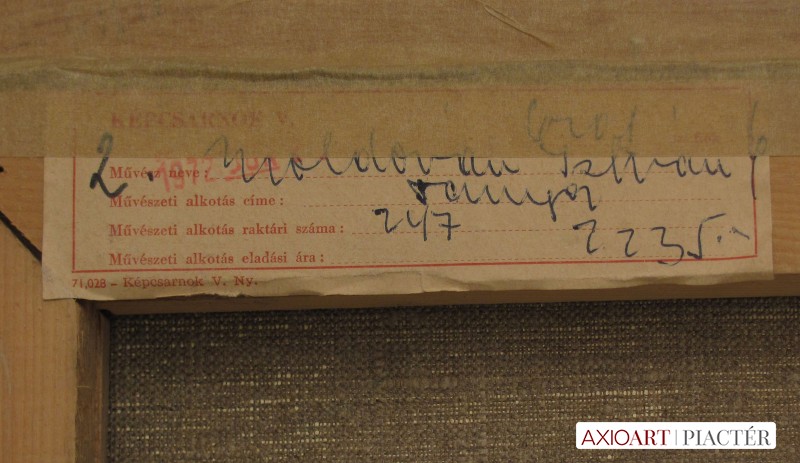 KÉPCSARNOK V.
2. Moldován István
Művész neve :
1972
Művészeti alkotás címe : Tanya
Művészeti alkotás raktári száma : 24/7
2235.-
Művészeti alkotás eladási ára :
71,028 – Képcsarnok V. Ny.
AXIOART | PIACTÉR